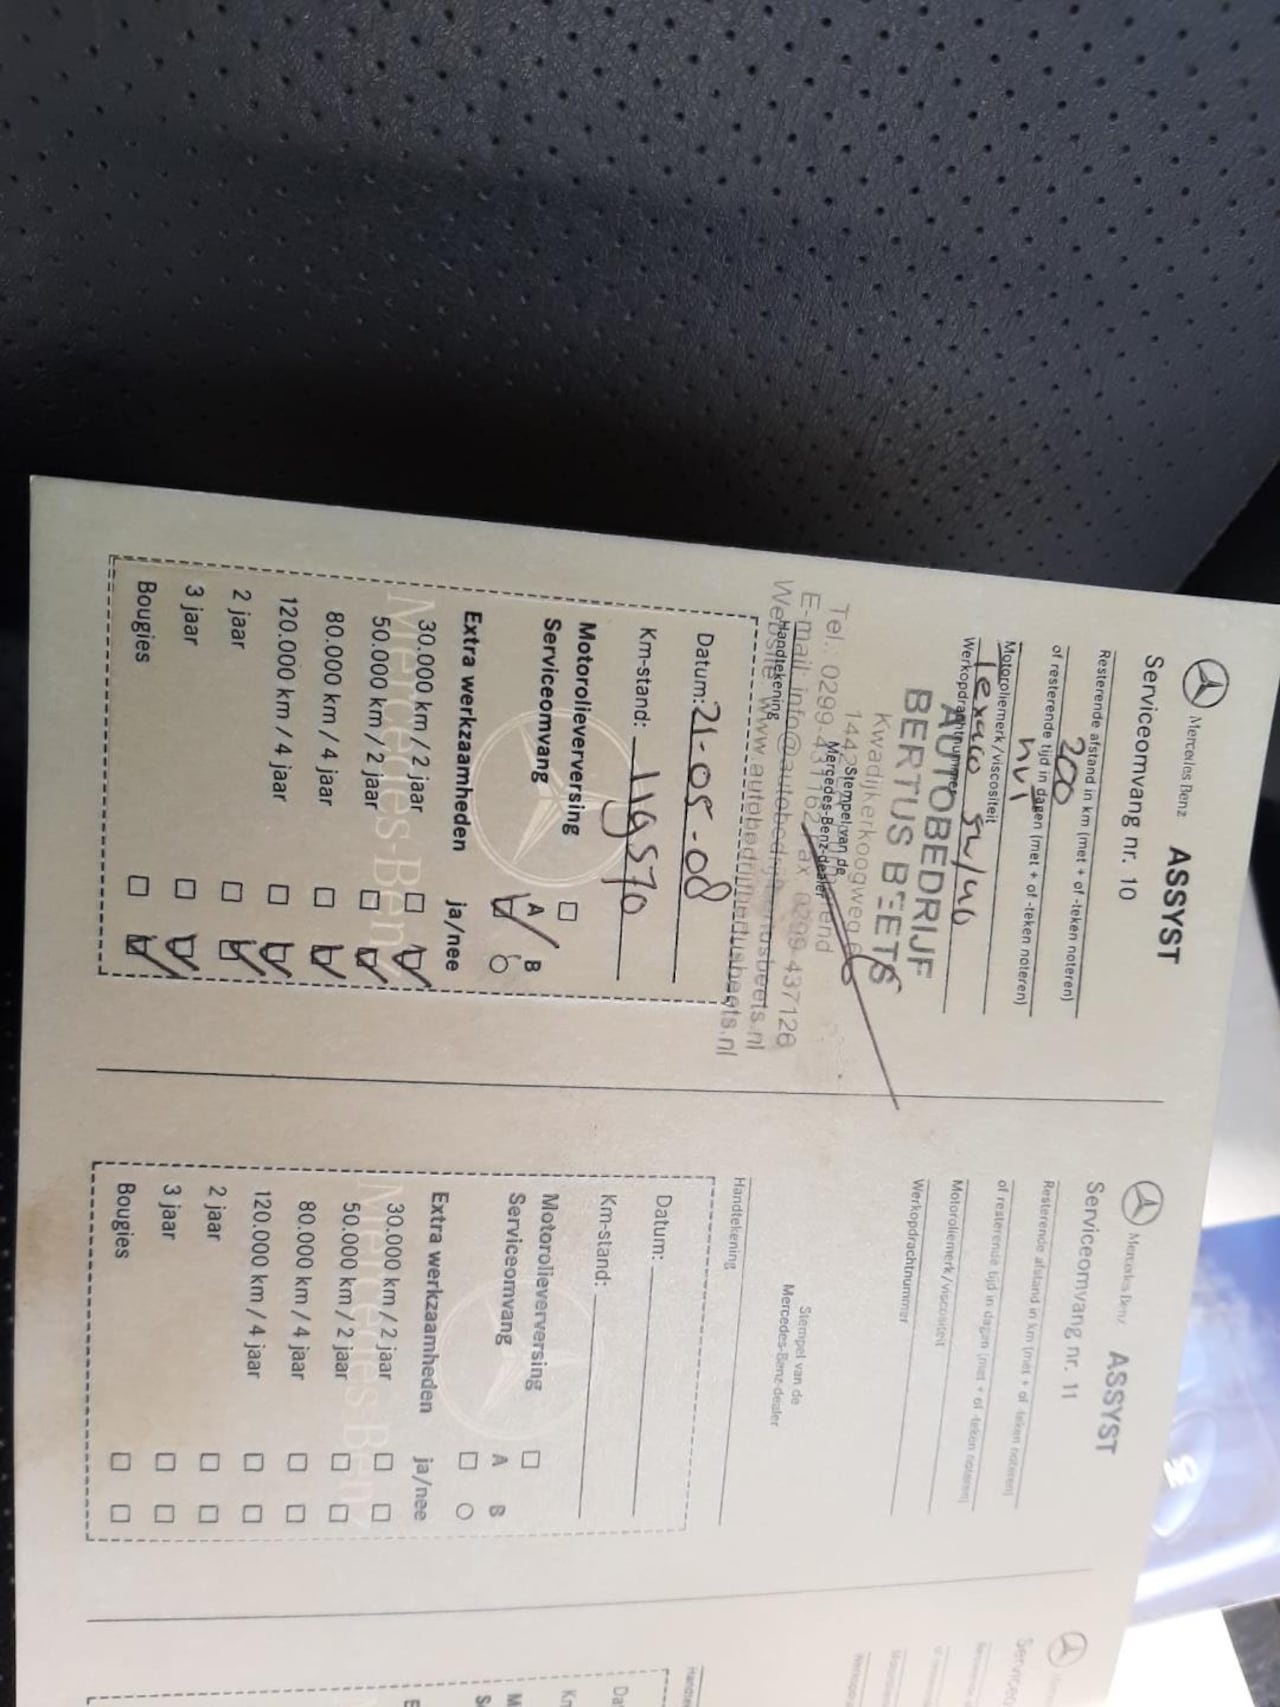 Mercedes Benz ASSYST
Serviceomvang nr. 10
Resterende afstand in km (met + of -teken noteren)
200
of resterende tijd in dagen (met + of -teken noteren)
Motoroliemerk/viscositeit
Texaco 5w/40
Werkopdrachtnummer
AUTOBEDRIJF
BERTUS BEETS
Kwadijkerkoogweg
Stempel van de
Mercedes-Benz-dealer
Tel.: 0299-437162 Fax 0299-437126
E-mail: info@autobedrijfbertusbeets.nl
Website: www.autobedrijfbertusbeets.nl
Handtekening
Datum: 21-05-08
Km-stand: 119570
Motorolieverversing
Serviceomvang A / B
Extra werkzaamheden ja/nee
30.000 km / 2 jaar
50.000 km / 2 jaar
80.000 km / 4 jaar
120.000 km / 4 jaar
2 jaar
3 jaar
Bougies
Mercedes-Benz
Mercedes Benz ASSYST
Serviceomvang nr. 11
Resterende afstand in km (met + of -teken noteren)
of resterende tijd in dagen (met + of -teken noteren)
Motoroliemerk/viscositeit
Werkopdrachtnummer
Stempel van de
Mercedes-Benz-dealer
Handtekening
Datum:
Km-stand:
Motorolieverversing
Serviceomvang A B
Extra werkzaamheden ja/nee
30.000 km / 2 jaar
50.000 km / 2 jaar
80.000 km / 4 jaar
120.000 km / 4 jaar
2 jaar
3 jaar
Bougies
Mercedes-Benz